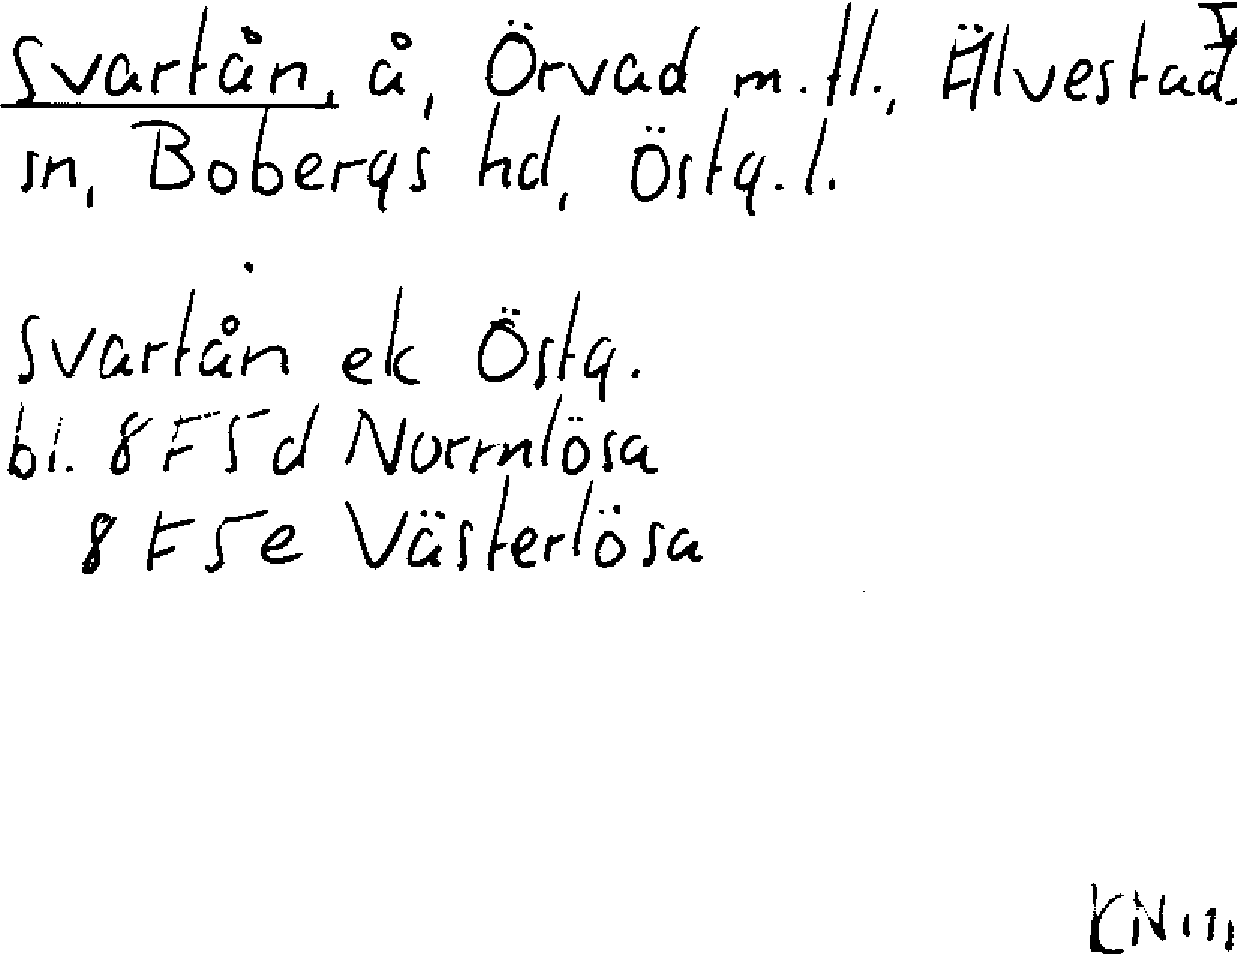 Svartån, å, Örvad m.fl., Älvestad
sn, Bobergs hd, Östg.l.
Svartån ek Östg.
bl. 8F5d Norrnlösa
8F5e Västerlösa